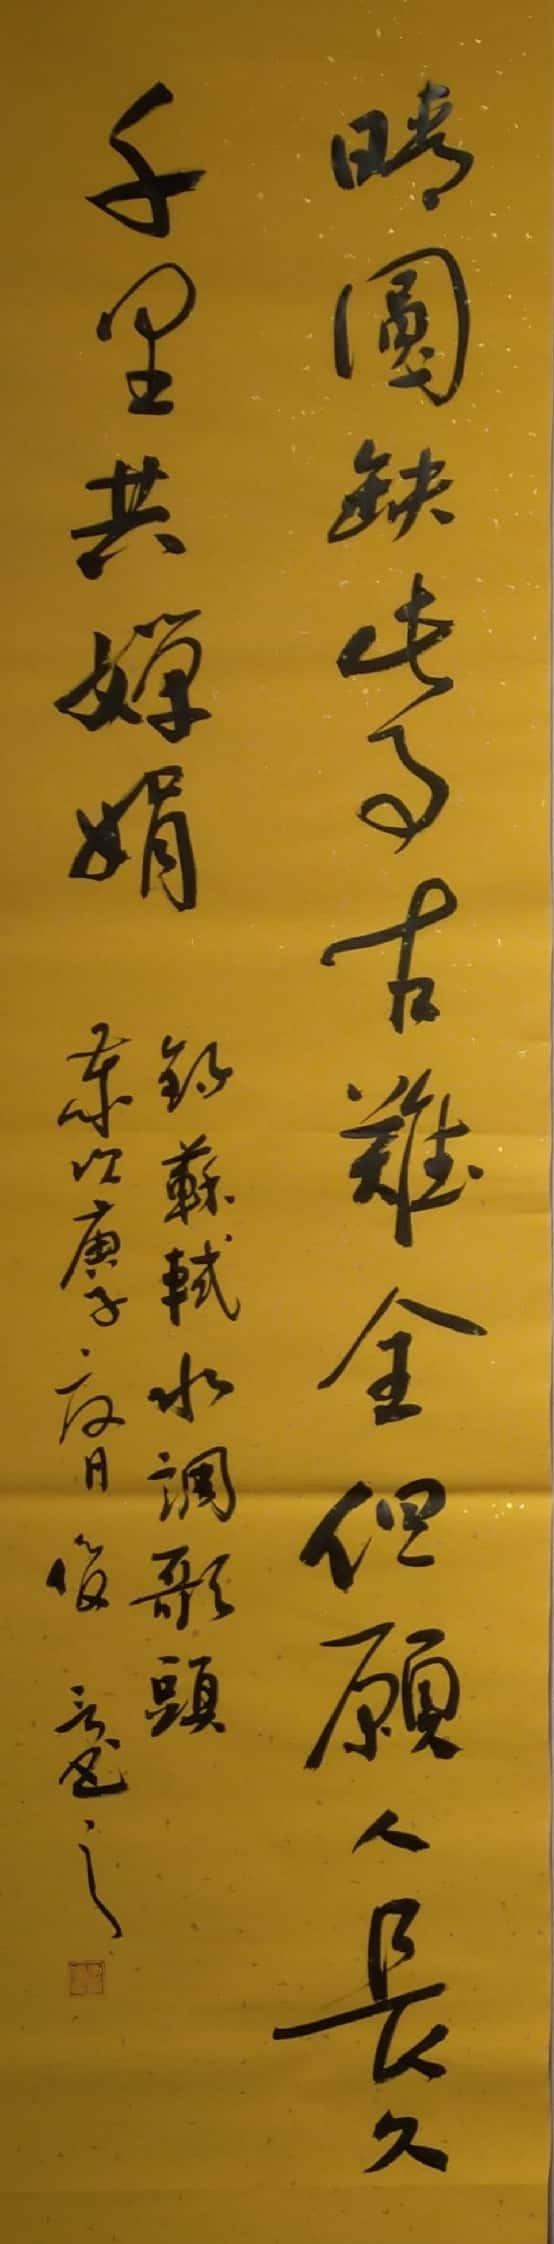 晴圓缺此事古難全但願人長久
千里共嬋娟
錄蘇軾水調歌頭
歲次庚子
月
書之